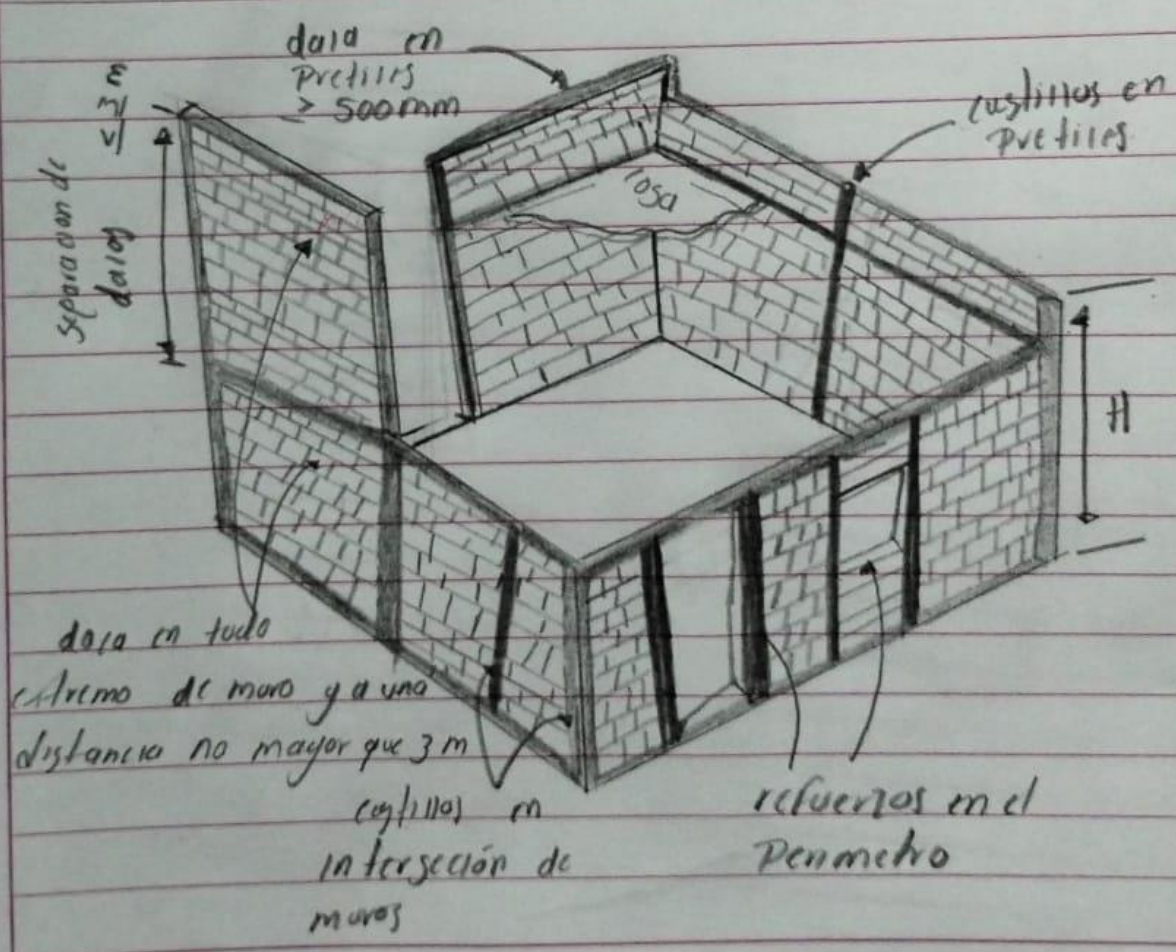 dala en
Pretiles
≥ 500mm
castillos en
pretiles
Separacion de
dalas
≤ 3 m
losa
H
dala en todo
extremo de muro y a una
distancia no mayor que 3 m
castillos en
interseción de
muros
refuerzos en el
Perimetro